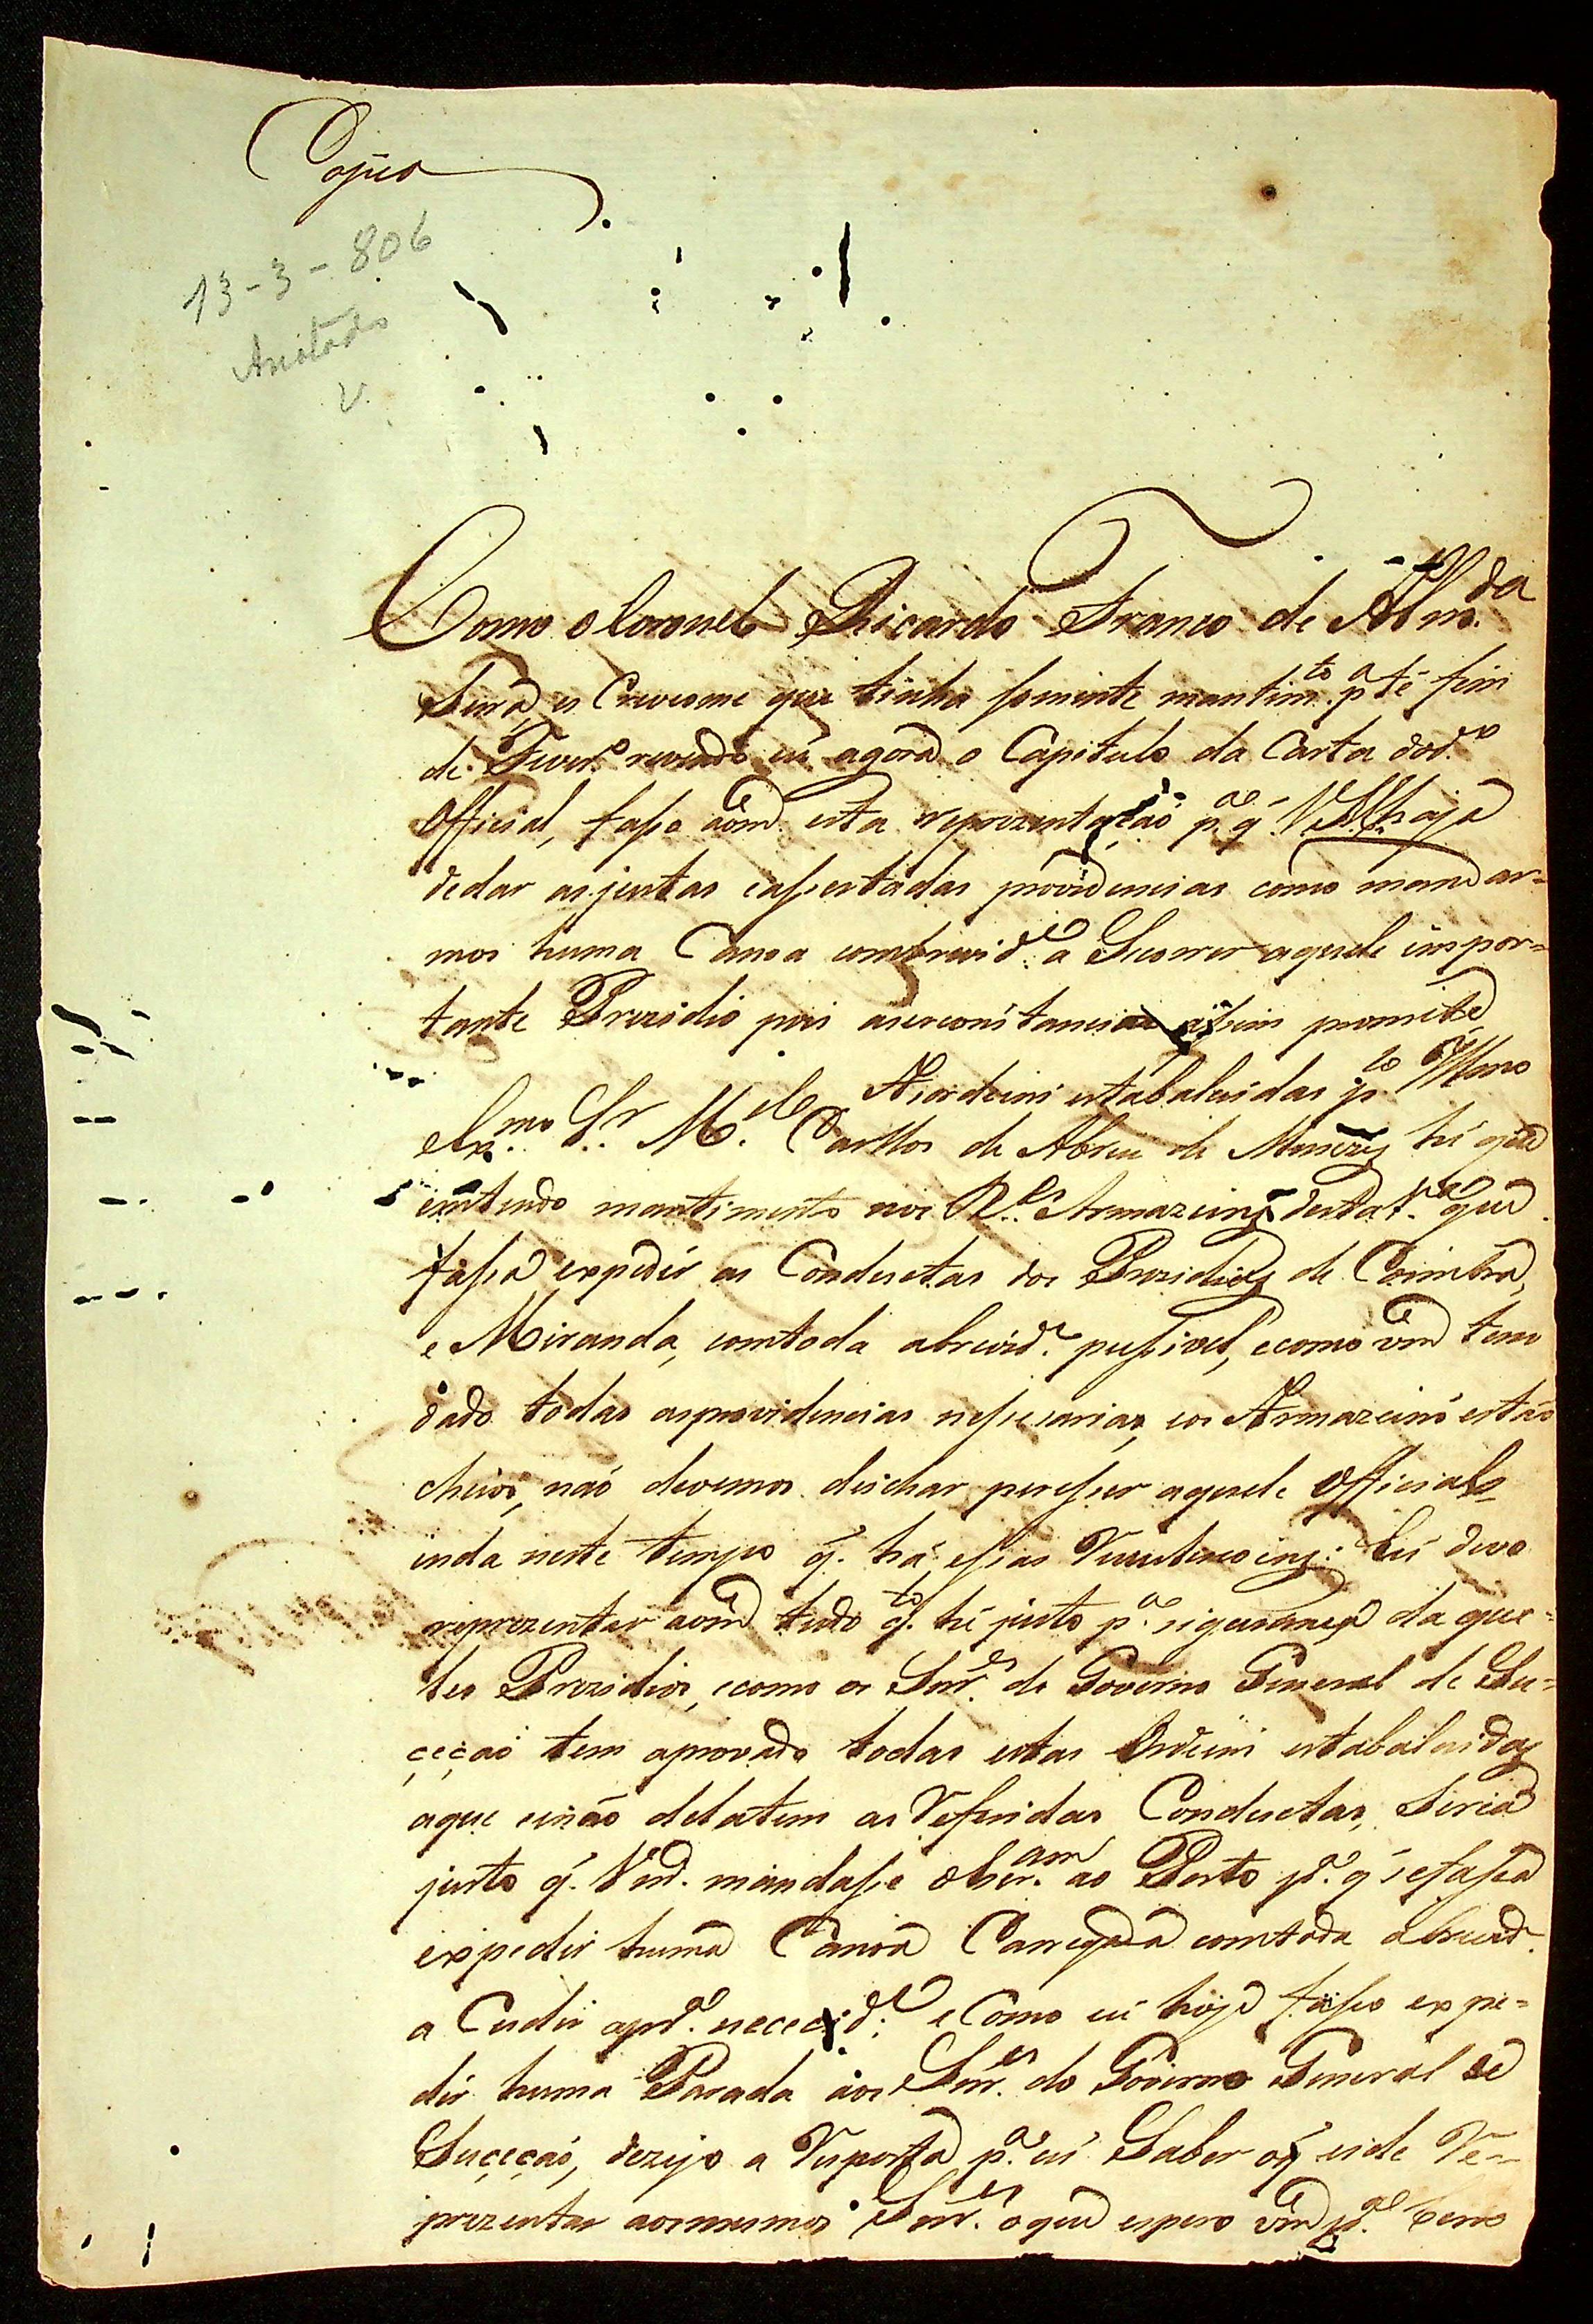 Copia
13-3-806
Anotado
V.
Como o Coronel Ricardo Franco de Alm.da
Serra es Creveome que tinha somente mantim.to p.a té fim
de Fever.o revendo eu agora o Capitulo da Carta dod.o
Official, faço aVm.ce esta reprezentação p.a q. VM.ce haja
dedar asjustas easertadas providencias como mandar=
mos huma Canoa combrevid.e a Socorrer aquele inpor=
tante Prezidio pois asserconstancias asim promite
As ordeins estabalesidas p.lo Illmo
eEx.mo Sr. M.el Carllos de Abreu de Menezes hé que
eintendo mantimento nos R.es Armazeins desta V.a que
fassa expedir as Conductas dos Prezidios de Coimbra,
e Miranda, comtoda abrevid.e pussivel, ecomo Vm.ce tem
dado todas asprovidencias nessesarias, eos Armazeins estáo
cheios, náo devemos deichar peresser aquele Official
inda neste tempo q. há essas Eu devo
reprezentar aVm.ce tudo q.to hé justo p.a siguransa daque=
les Prezidios, ecomo os Snr.es do Governo General de Su=
çeçaó tem aprovado todas estas Ordeins estabalesidas
aque senáo delatem as Refferidas Conductas, Seria
justo q. Vm.ce mandasse ao Porto p.a q sefassa
expedir huma Canoa Carregada comtoda abrevid.e
a Cudir apd.a nececid.e; eComo eu hoje fasso expe=
dir huma Parada aos Snr.es do Governo General de
Suçeçaó, dezejo a Resposta p.a eu Saber oq eide Re=
prezentar aosmesmos Snr.es oque espero Vm.ce p.lo bem